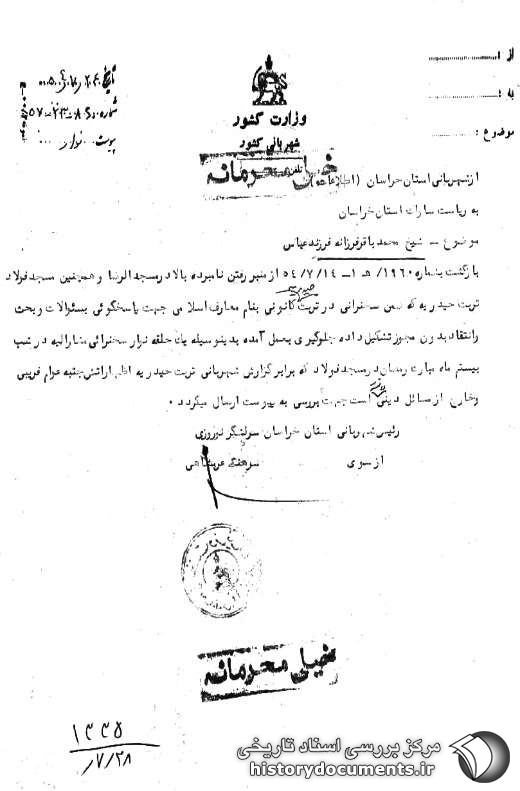 از
به :
موضوع :
تاریخ
شماره
پیوست نوار
وزارت کشور
شهربانی کشور
خیلی محرمانه
از شهربانی استان خراسان (اطلاعات)
به ریاست ساواک استان خراسان
موضوع – شیخ محمد باقر فرزانه فرزند عباس
بازگشت بشماره ۱۹۶۰/ هـ ۱ــ ۵۴/۷/۱۴ از منبر رفتن نامبرده بالا در مسجد الرضا و همچنین مسجد فولاد
تربت حیدریه که ضمن سخنرانی در تربت حیدریه کانونی بنام معارف اسلامی جهت پاسخگوئی بسئوالات و بحث
وانتقاد بدون مجوز تشکیل داده جلوگیری بعمل آمده بدینوسیله یک حلقه نوار سخنرانی مشارالیه در شب
بیستم ماه مبارک رمضان در مسجد فولاد که برابر گزارش شهربانی تربت حیدریه اظهاراتش جنبه عوام فریبی
وخارج از مسائل دینی روز است جهت بررسی به پیوست ارسال میگردد .
رئیس شهربانی استان خراسان سرلشگر نوروزی
از سوی سرهنگ
خیلی محرمانه
۱۳۳۵
/۷/۲۸
مرکز بررسی اسناد تاریخی
historydocuments.ir